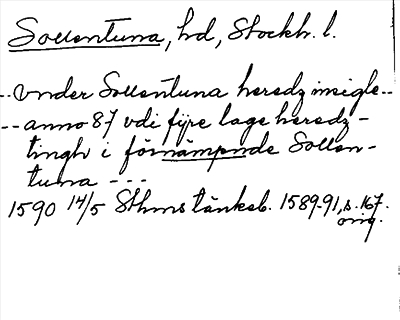 Sollentuna, hd, Stockh. l.
-- vnder Sollentuna heredz insigle --
-- anno 87 vdi fyre lage heredz-
tingh i förnämpnde Sollen-
tuna ---
1590 14/5 Sthms tänkeb. 1589-91, s. 167.
orig.